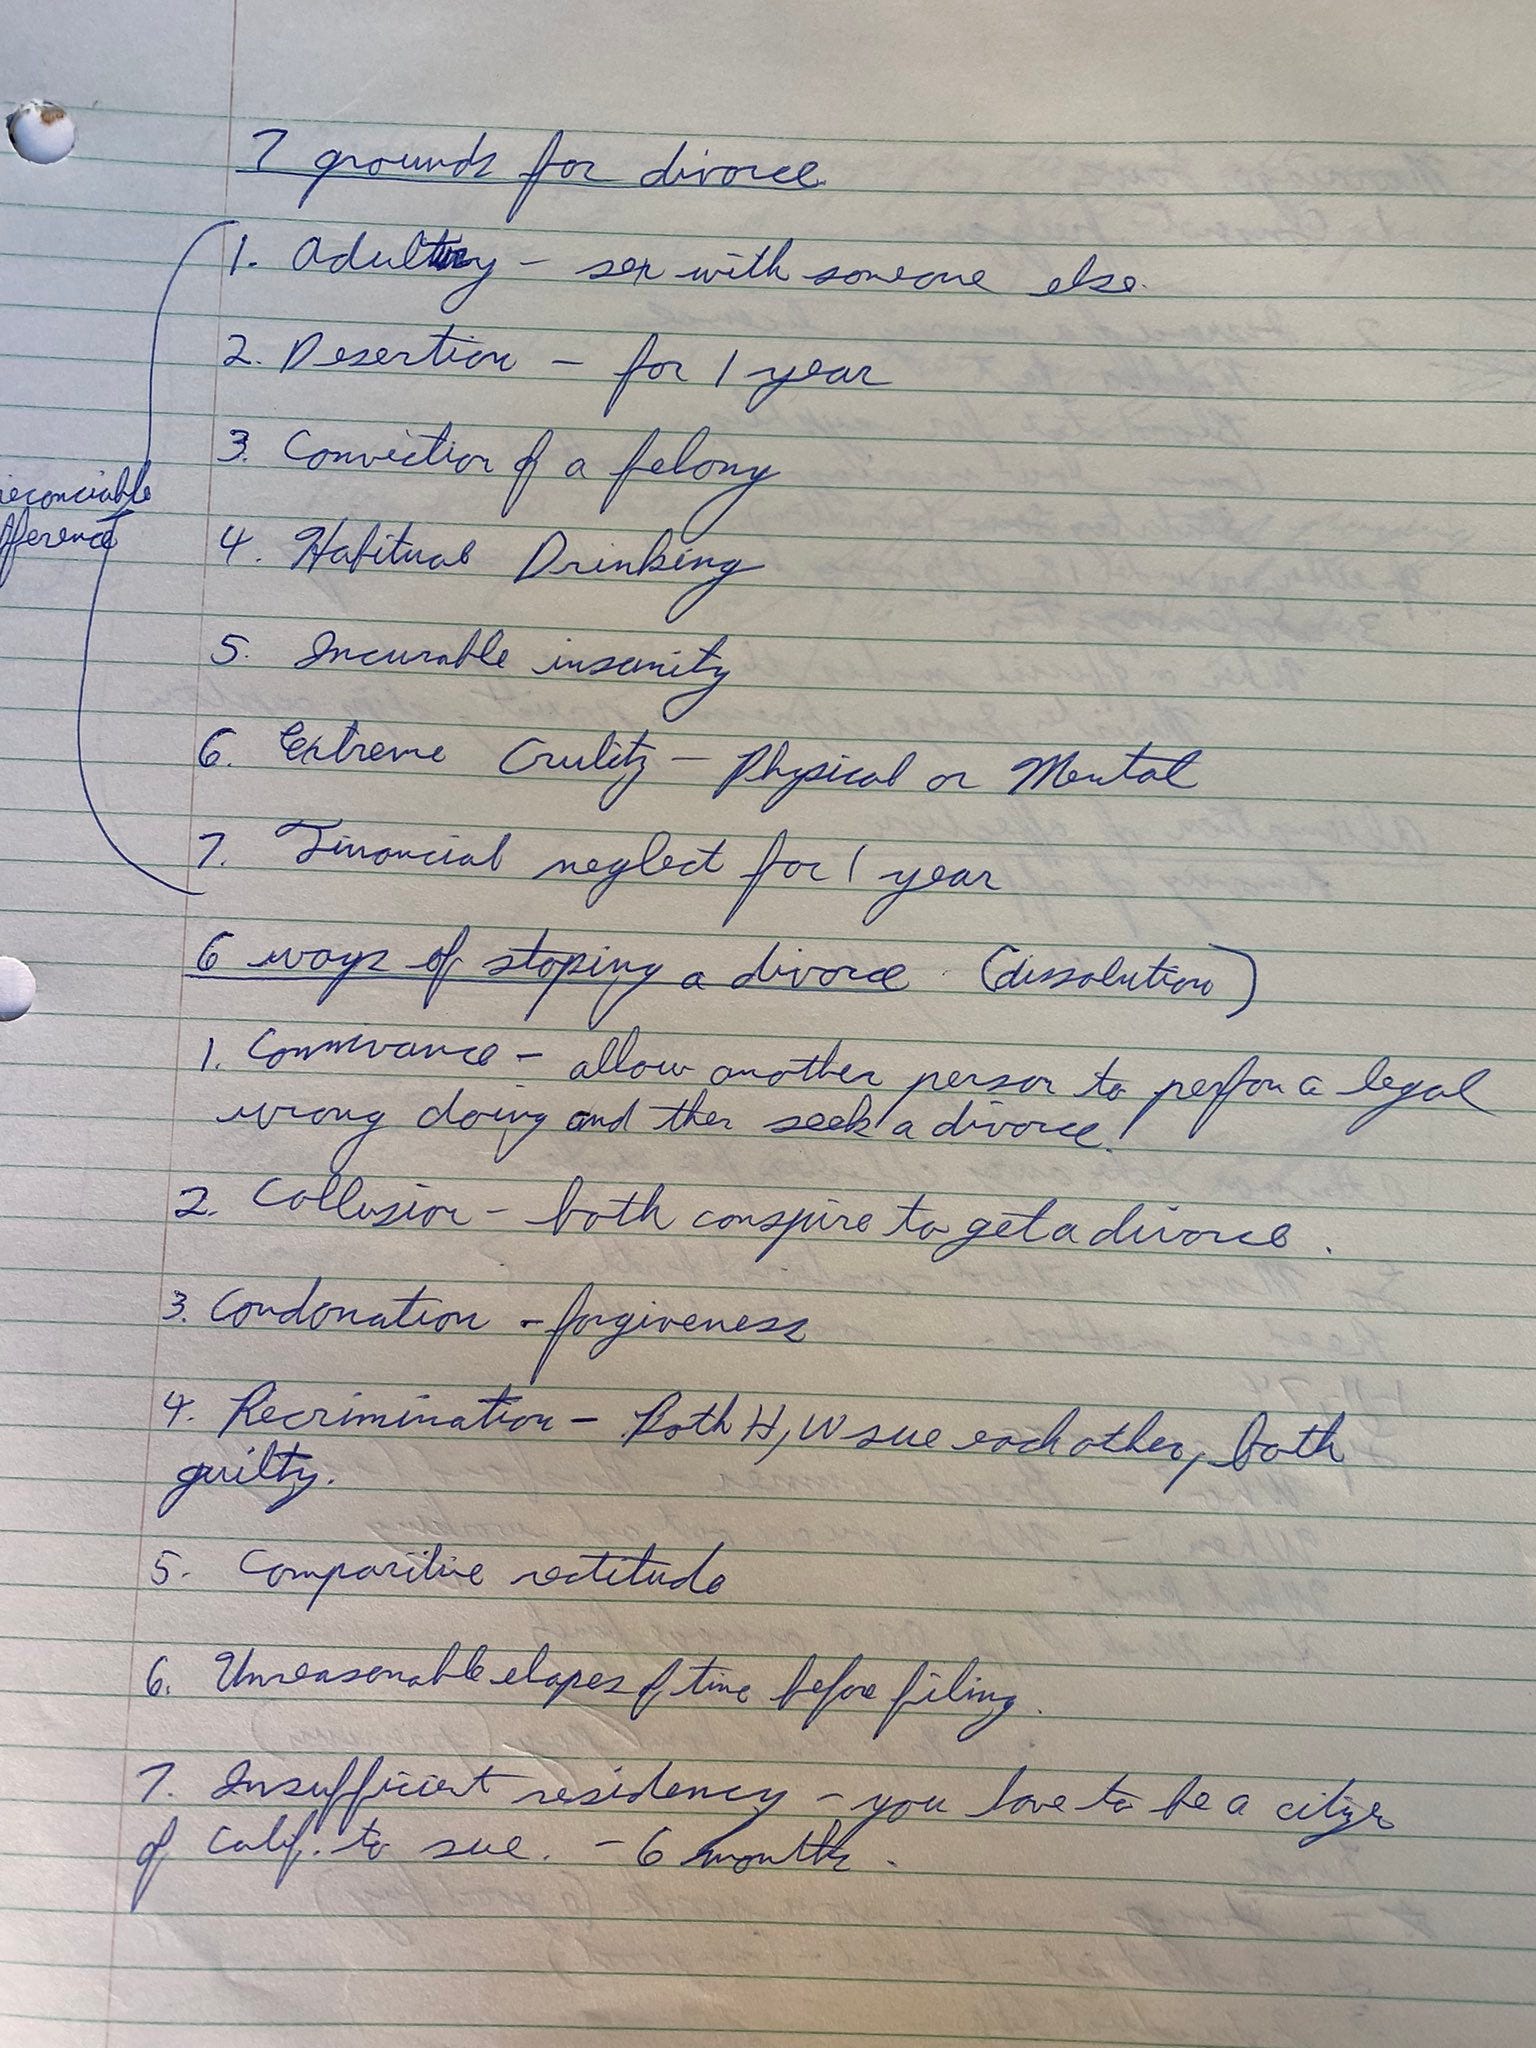 7 grounds for divorce
1. Adultry - sex with someone else.
2. Desertion - for 1 year
3. Conviction of a felony
ireconciable
fference
4. Habitual Drinking
5. Incurable insanity
6. Extreme Crulity - Physical or Mental
7. Financial neglect for 1 year
6 ways of stoping a divorce (dissolution)
1. Connivance - allow another person to perfon a legal
wrong doing and then seek a divorce!
2. Collusion - both conspire to get a divorce.
3. Condonation - forgiveness
4. Recrimination - Both H, W sue each other, both
guilty.
5. Comparitive rectitude
6. Unreasonable elapes of time before filing.
7. Insufficient residency - you have to be a citizen
of Calif. to sue. - 6 month.